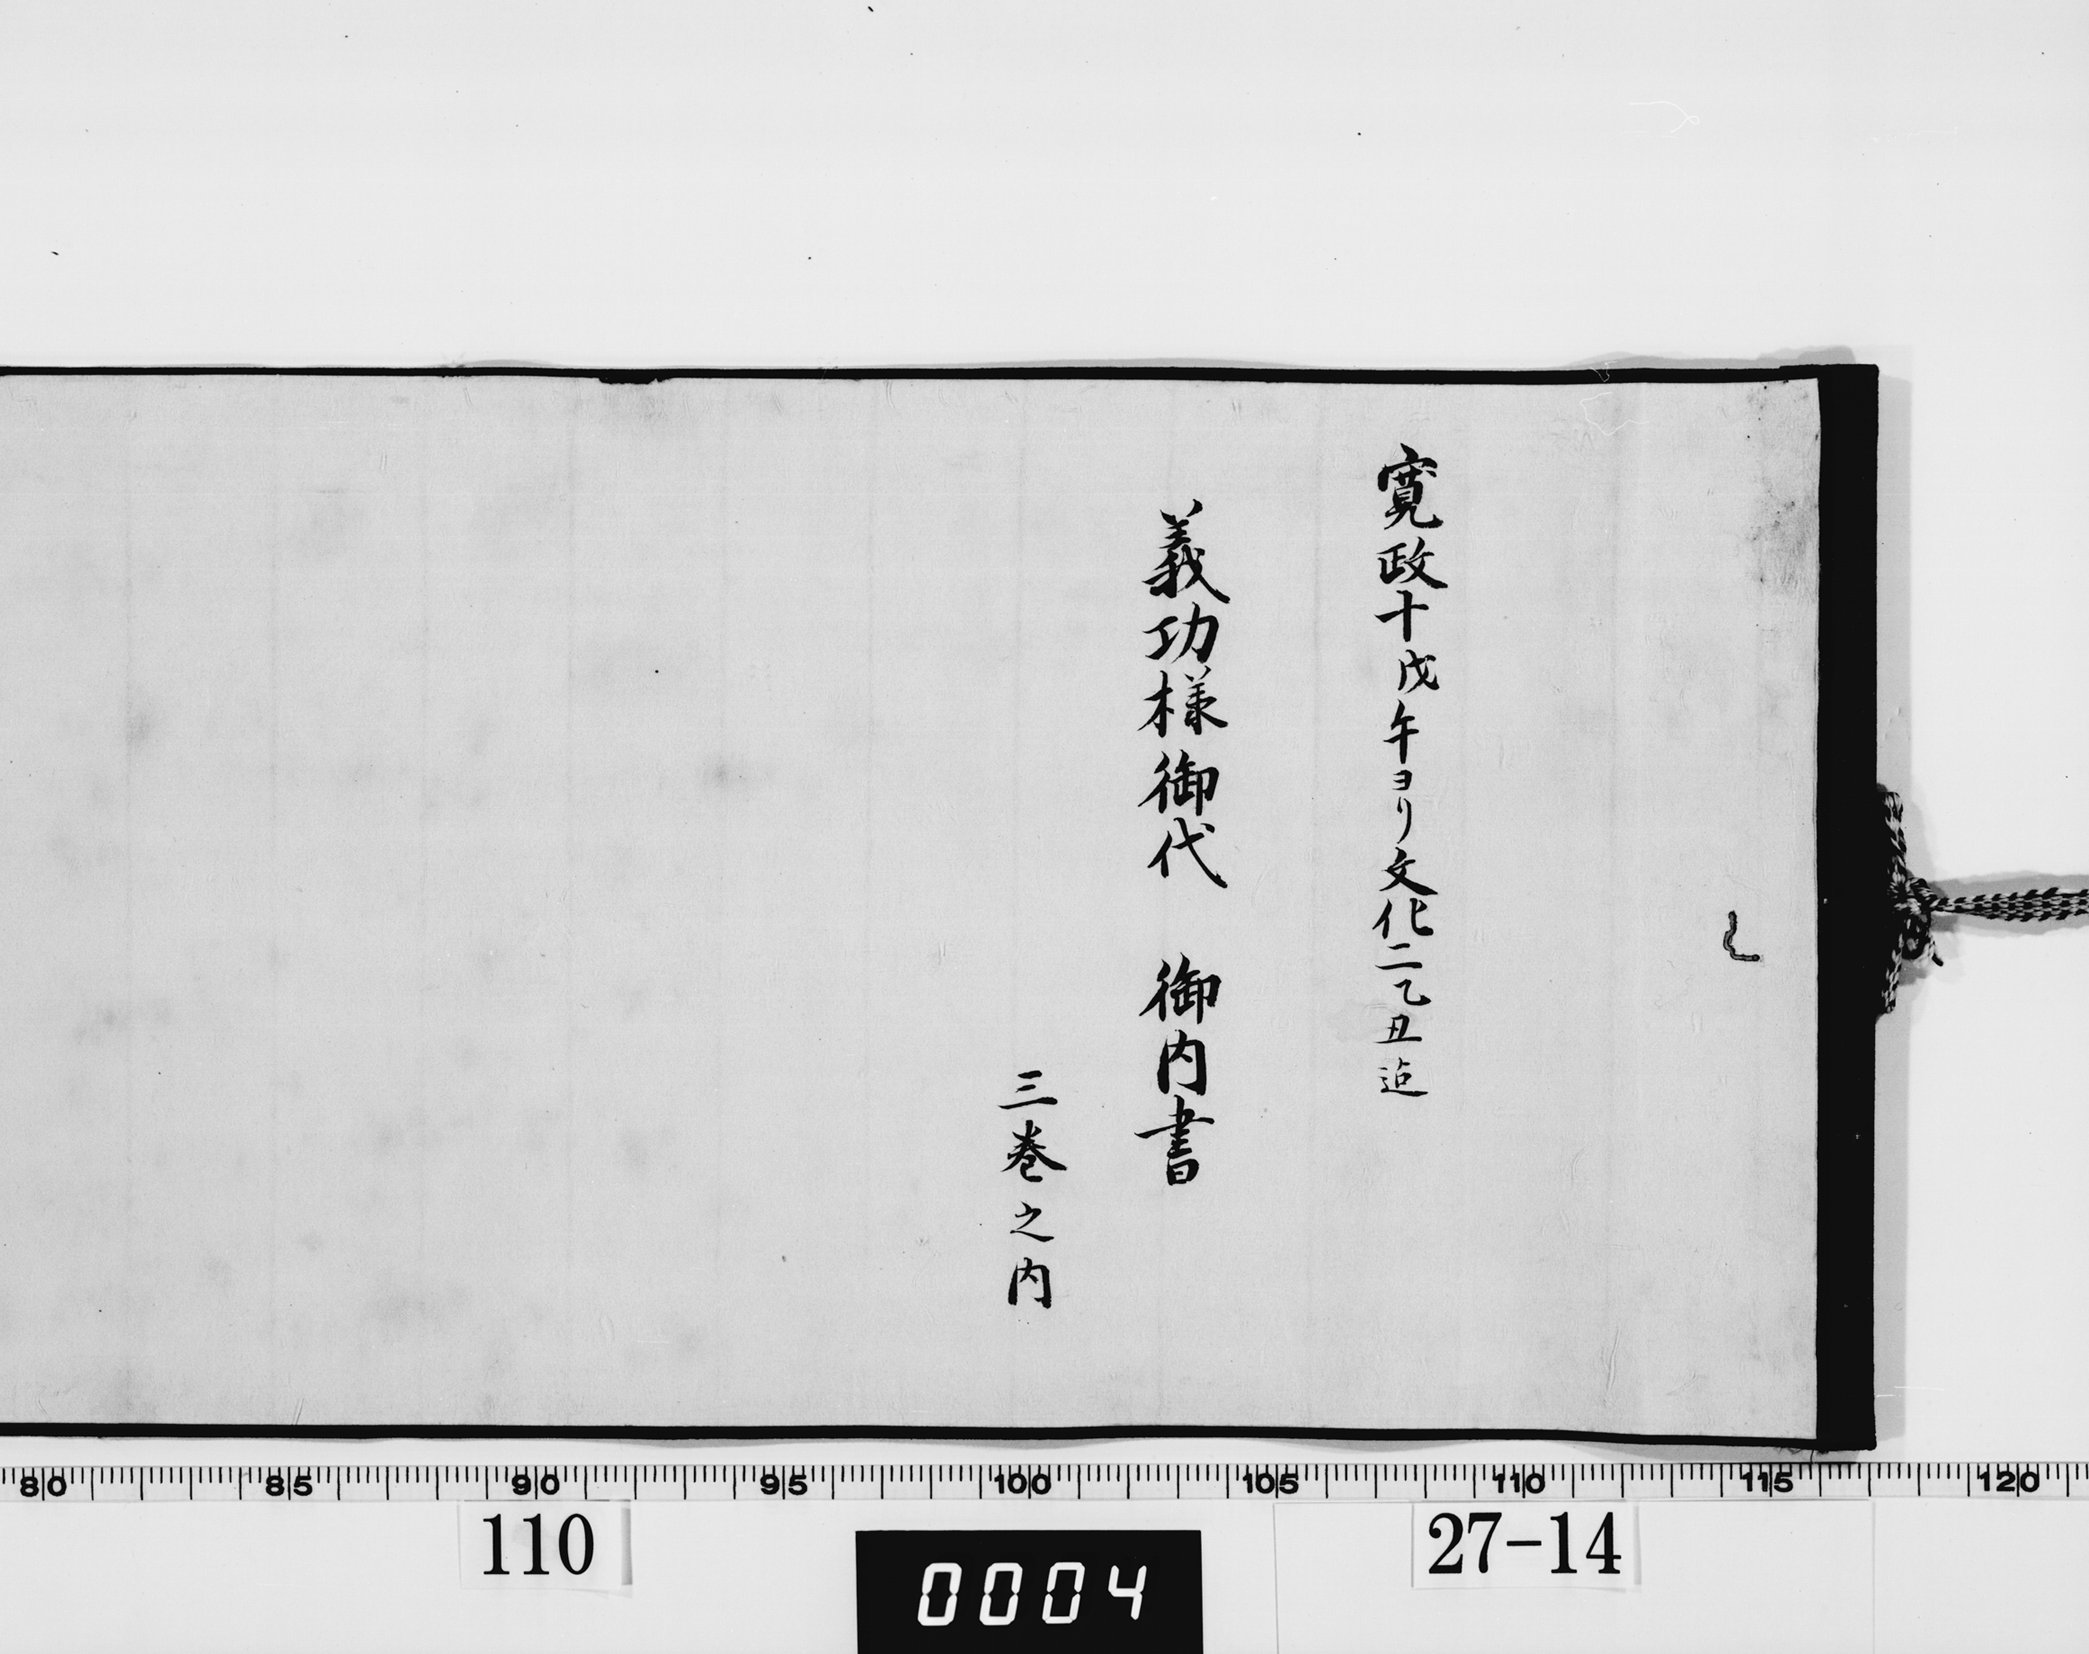 寛政十戊午ヨリ文化二乙丑迠
義功様御代　御内書
三巻之内
80 85 90 95 100 105 110 115 120
110
0004
27-14